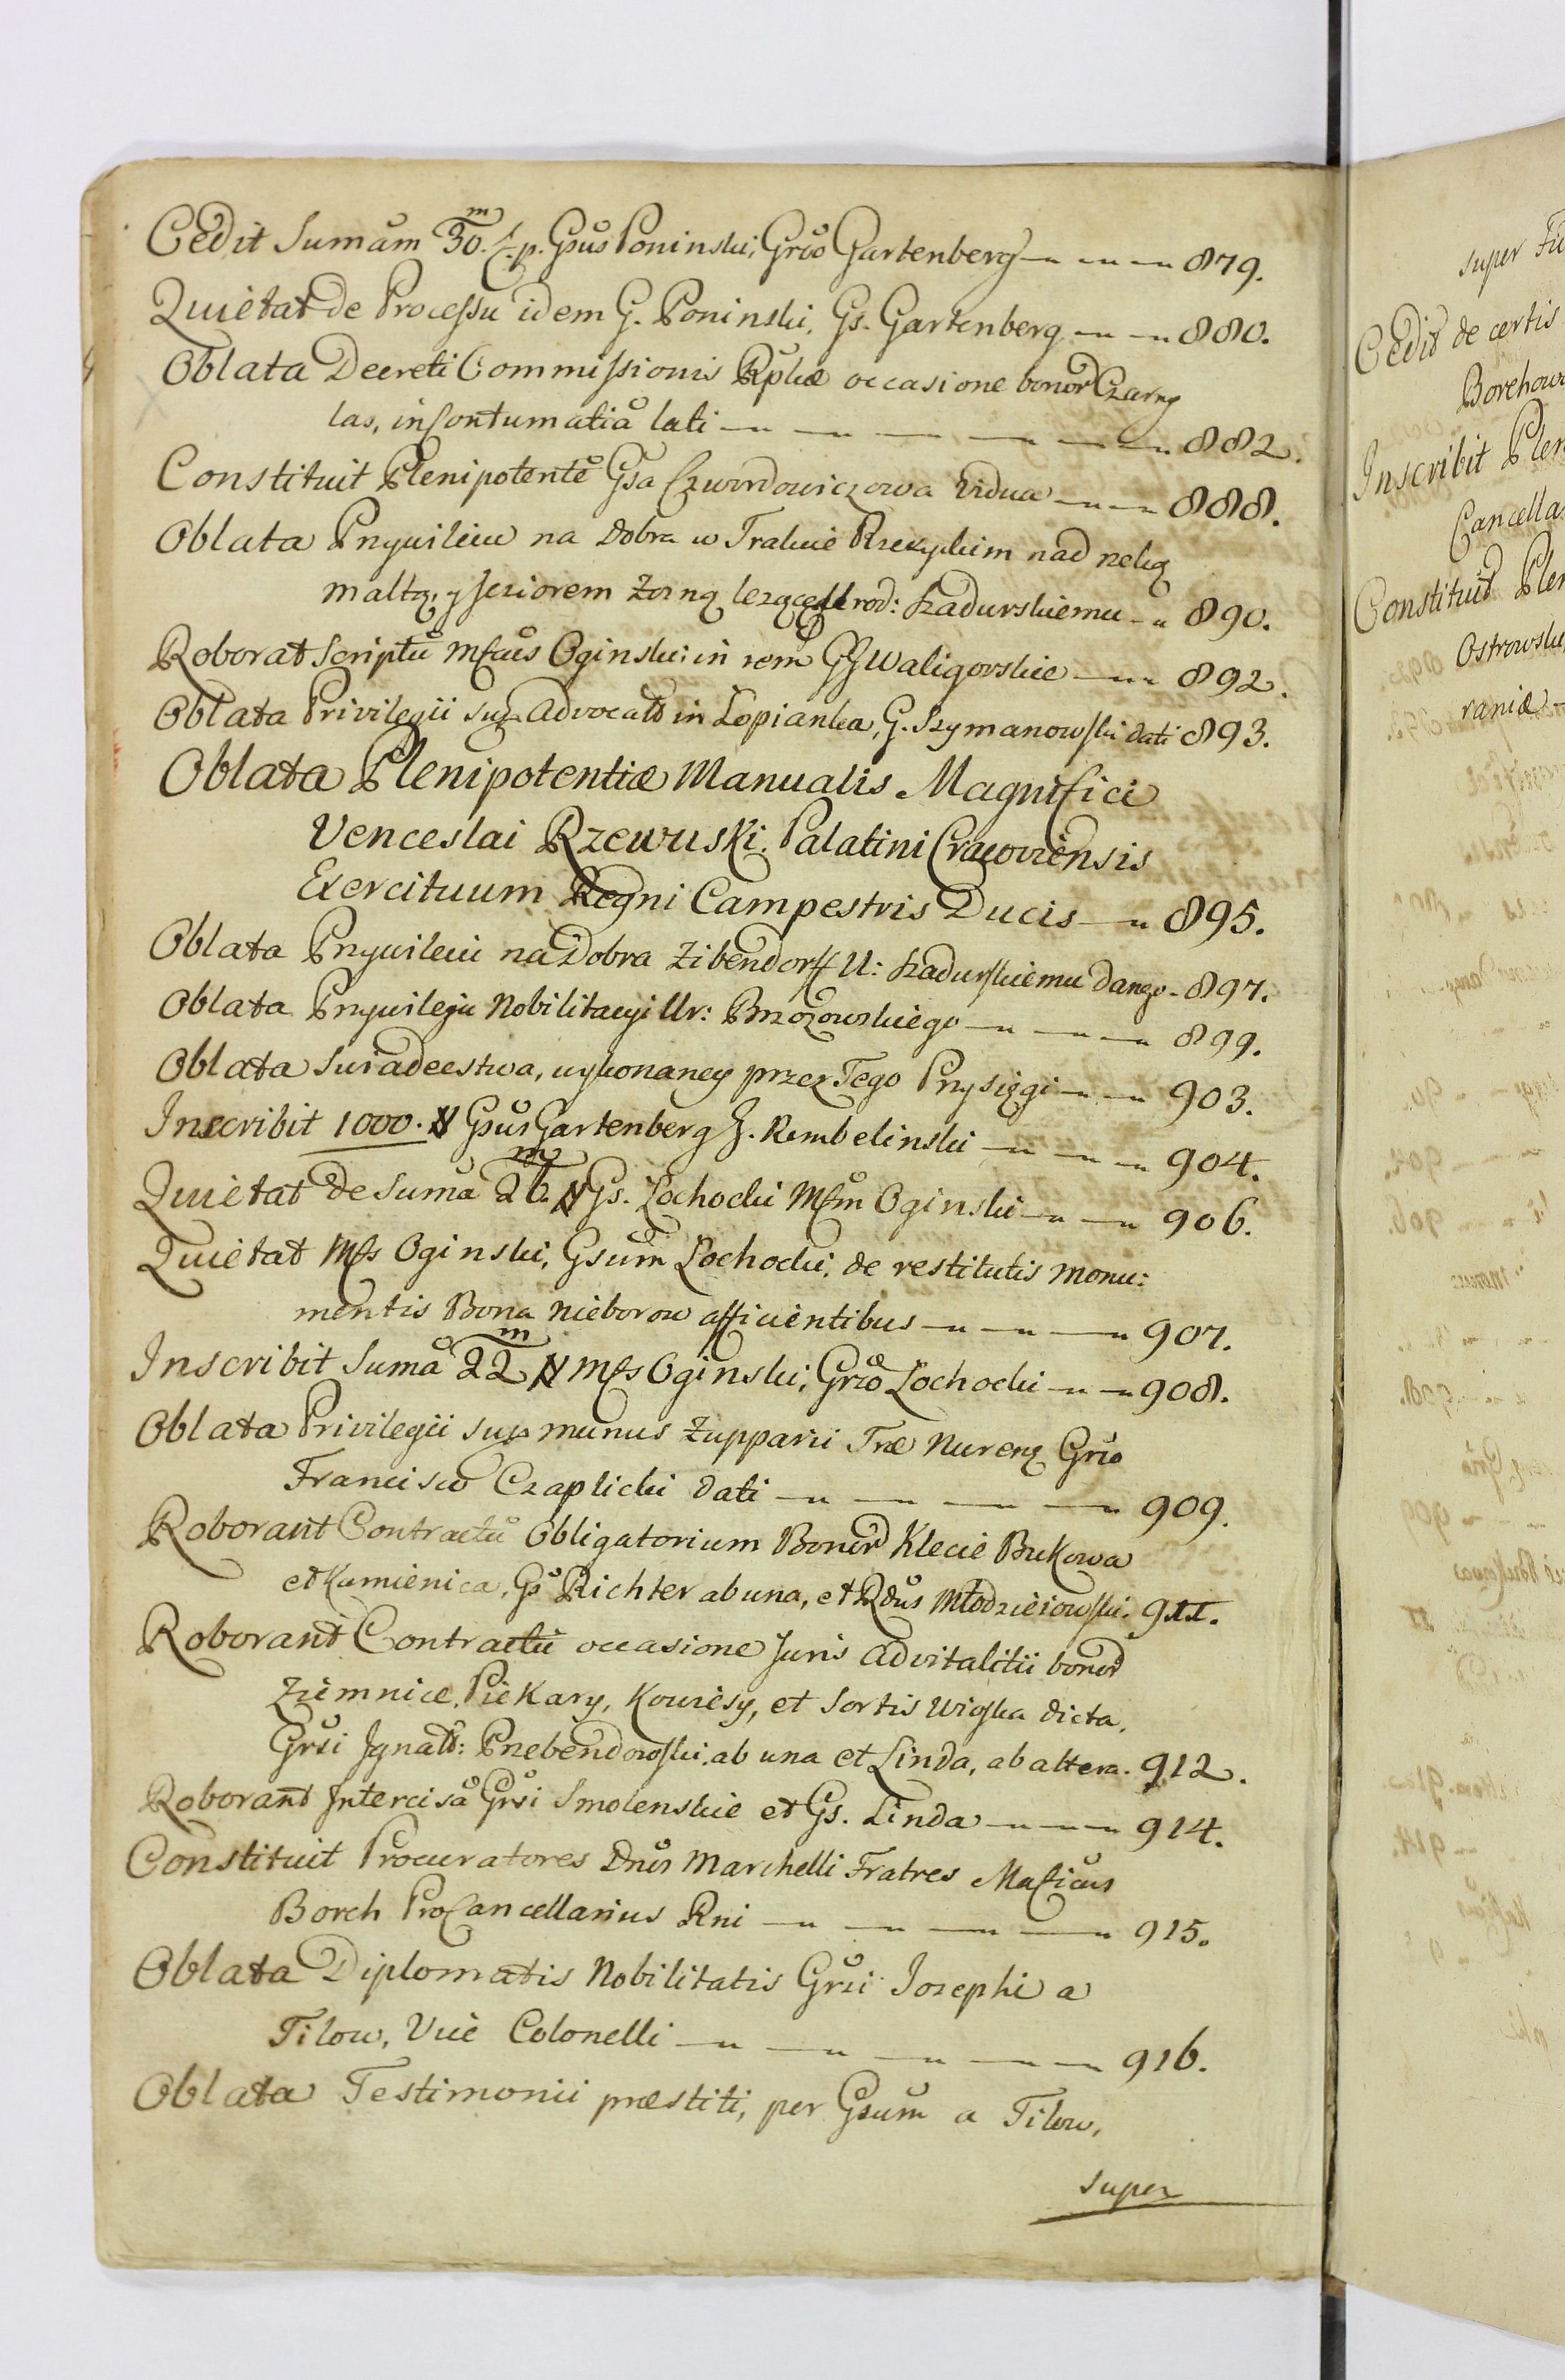 Cedit Sumam 30.m f. p. Gsus Poninski, Grso Gartenberg 879.
Quietat de Processu idem G. Poninski, Gs. Gartenberg 880.
Oblata Decreti Commissionis Rplicæ occasione bonor Czarny
las, in Contumatia lati 882.
Constituit Plenipotente Gsa Czwordowiczowa Vidua 888.
Oblata Przywileiu na Dobra w Trakcie Rzeczyckim nad rzeką
małtą, y Jeziorem leżące Urod: Szadurskiemu 890.
Roborat Scriptu Mfcus Oginski in rem GG Waligorskie 892.
Oblata Privilegii sup Advocat in Lopianka, G. Szymanowski dati 893.
Oblata Plenipotentiæ Manualis Magnifici
Venceslai Rzewuski Palatini Cracoviensis
Exercituum Regni Campestris Ducis 895.
Oblata Przywileiu na Dobra Zibendorff U: Szadurskiemu danego 897.
Oblata Przywileju Nobilitacyi Ur: Brzozowskiego 899.
Oblata Swiadectwa, wykonaney przez Tego Przysięgi 903.
Inscribit 1000. # Gsus Gartenberg G. Rembelinski 904.
Quietat de Suma 26.m # Gs. Lochocki Mfm Oginski 906.
Quietat Mfs Oginski, Gsum Lochocki, de restitutis monu:
mentis Bona Nieborow afficientibus 907.
Inscribit Suma 22m # Mfs Oginski, Grso Lochocki 908.
Oblata Privilegii sup munus Zupparii Træ Nuren Grso
Francisco Czaplicki dati 909.
Roborant Contractu Obligatorium Bonor Klecie Bukowa
et Kamienica, Gs Richter ab una, et Rdus Młodzieiowski. 911.
Roborant Contractu occasione Juris advitalitii bonor
Ziemnice, Piekary, Kowiesy, et Sortis Wioska dicta,
Grsi Ignat: Przebendowski ab una et Linda, ab altera. 912.
Roborant Intercisa Grsi Smolenskie et Gs. Linda 914.
Constituit Procuratores Dnos Marchelli Fratres Mafficus
Borch ProCancellarius Rni 915.
Oblata Diplomatis Nobilitatis Grsi Josephi a
Tilow, Vice Colonelli 916.
Oblata Testimonii præstiti, per Gsum a Tilow,
super
super
Cedit de certis
Inscribit Plen
Cancella
Constituit Plen
Ostrowski
raniæ